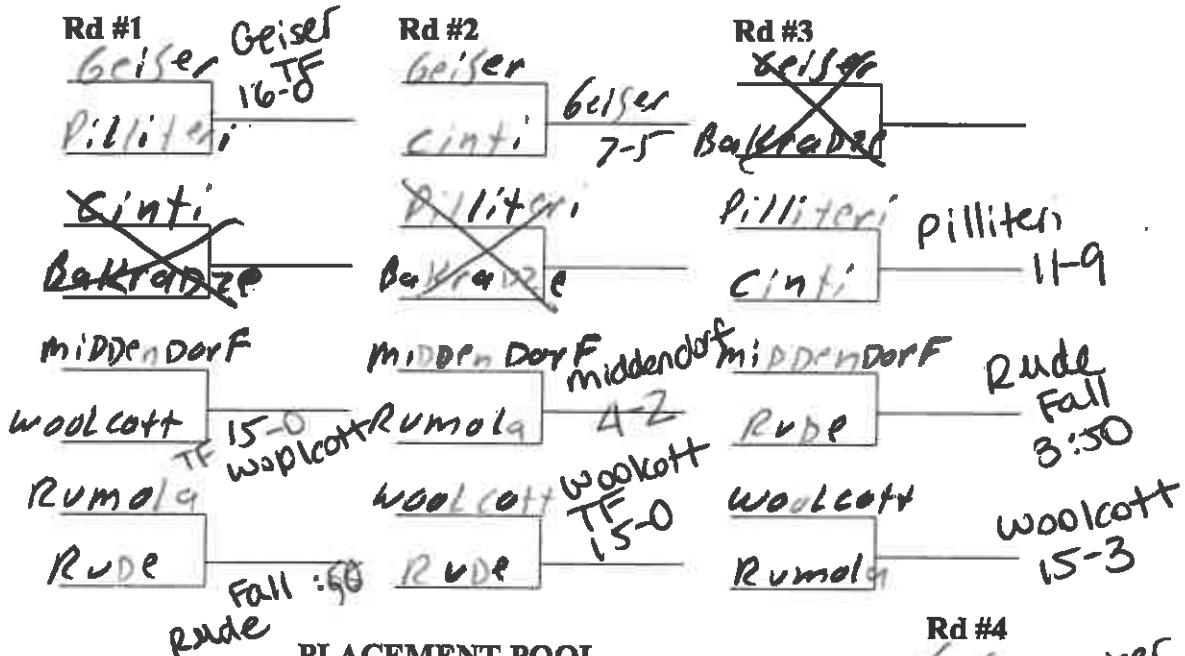 Rd #1
Geiser
TF
16-0
Geiser
Pilliteri
Cinti
Bakradze
MiDDenDorF
Woolcott
TF 15-0
Woolcott
Rumola
RuDe
Fall
Rude
Rd #2
Geiser
Cinti
Geiser
7-5
Pilliteri
Bakradze
MiDDenDorF
Rumola
middendorf
4-2
Woolcott
RuDe
Woolcott
TF
15-0
Rd #3
Geiser
Bakradze
Pilliteri
Cinti
Pilliteri
11-9
MiDDenDorF
RuDe
Rude
Fall
3:50
Woolcott
Rumola
Woolcott
15-3
PLACEMENT POOL
Rd #4